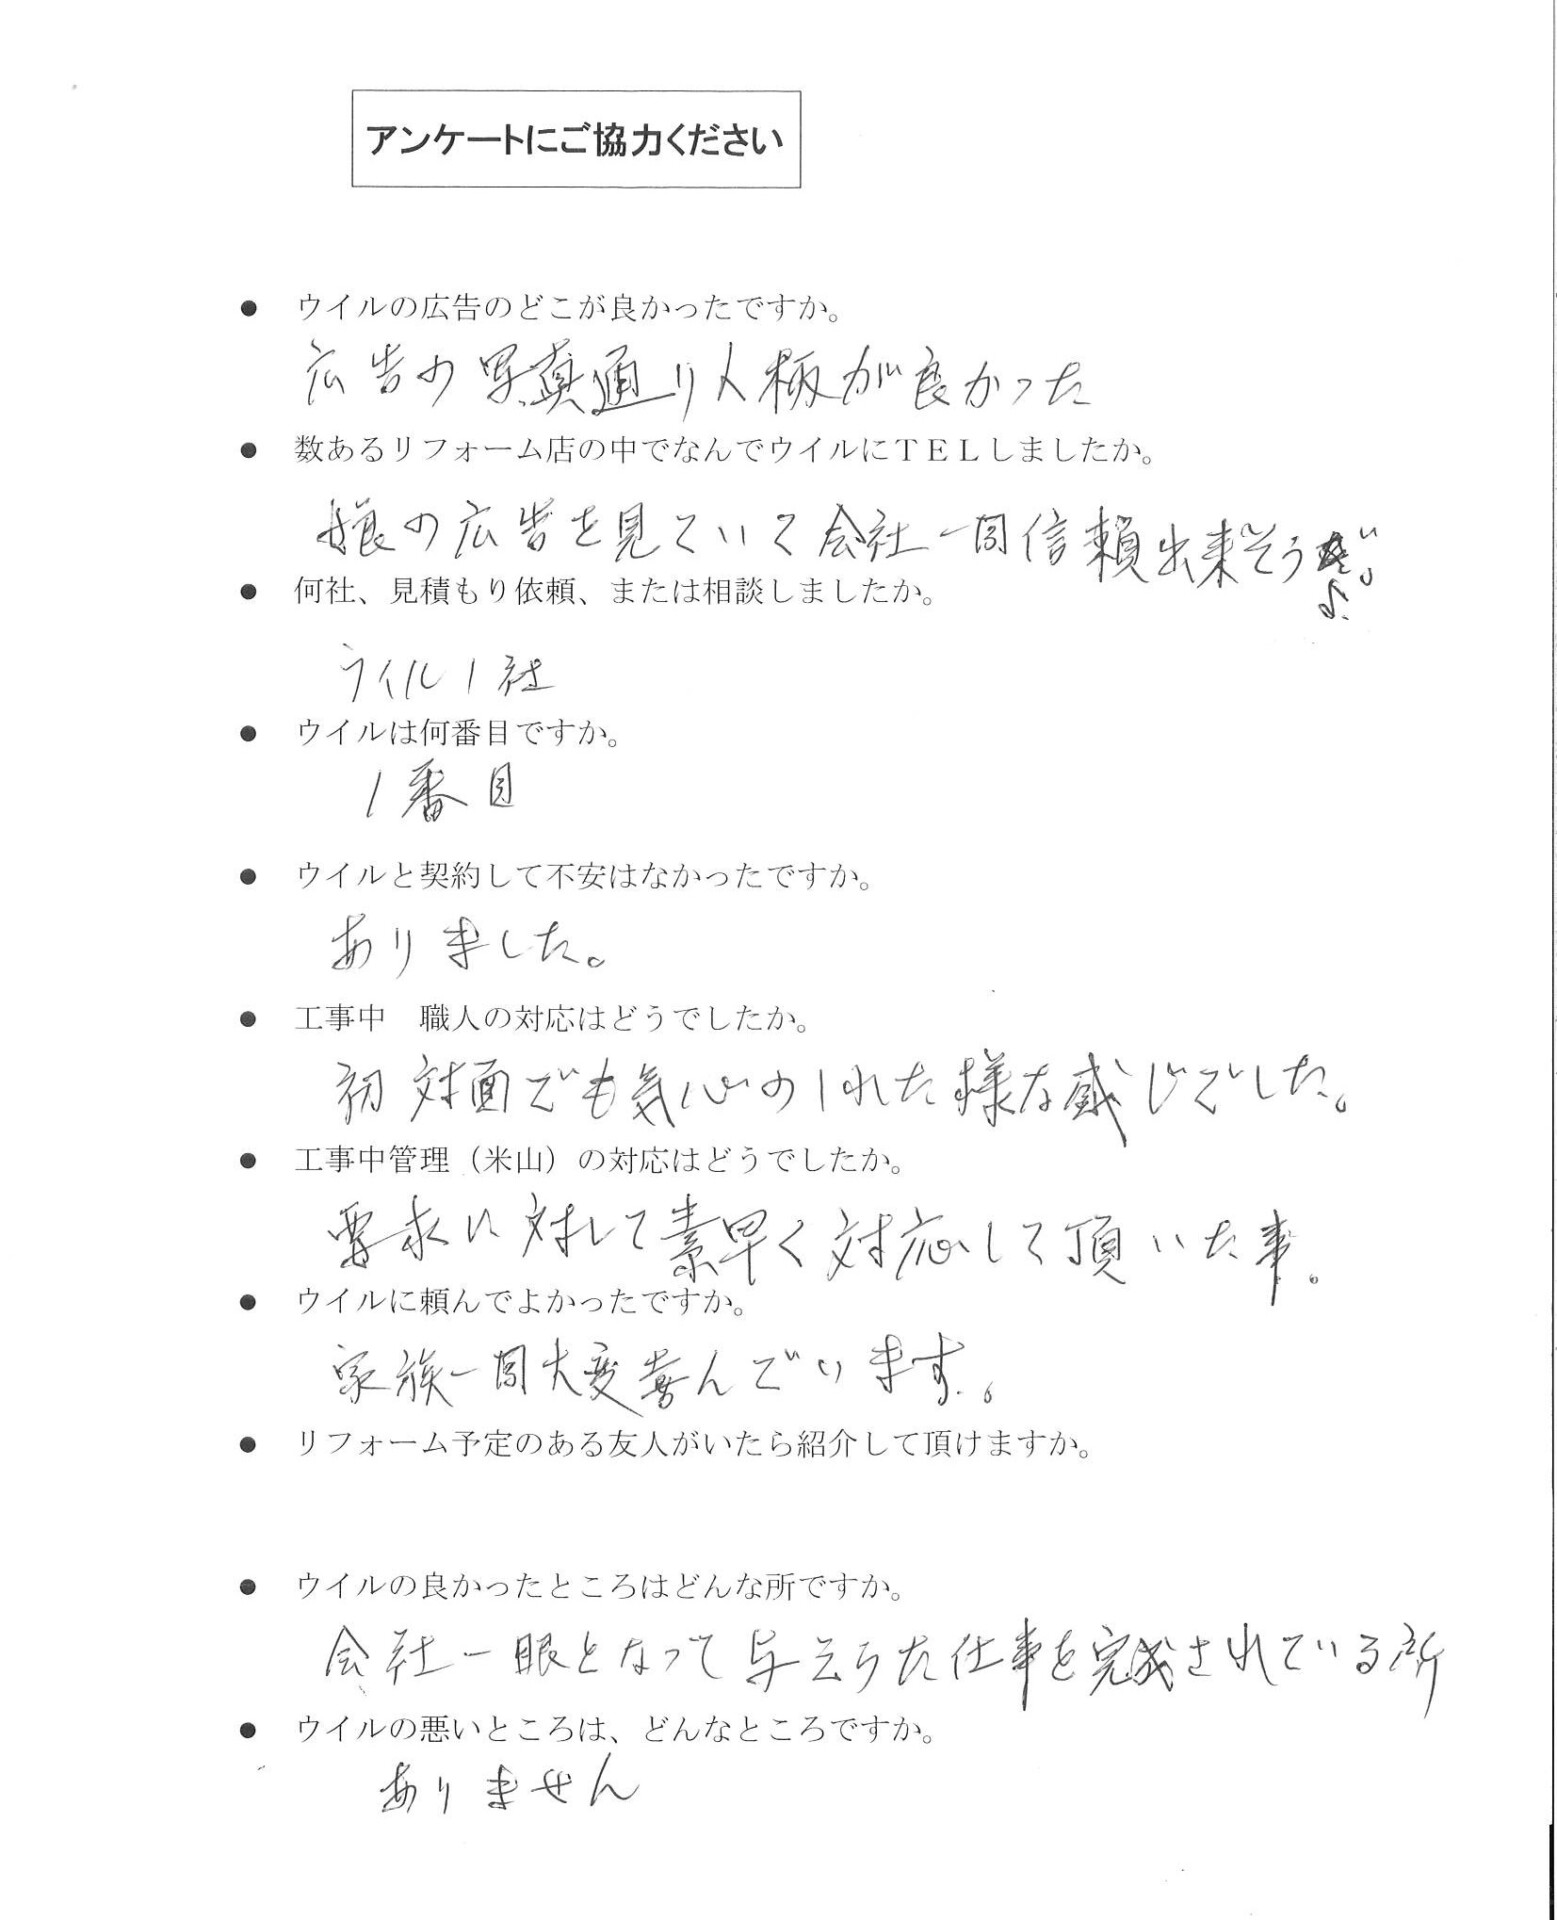 アンケートにご協力ください
● ウイルの広告のどこが良かったですか。
広告の写真通り人柄が良かった
● 数あるリフォーム店の中でなんでウイルにＴＥＬしましたか。
の広告を見ていて会社一同信頼出来そうだ。
♪
● 何社、見積もり依頼、または相談しましたか。
ウイル1社
● ウイルは何番目ですか。
1番目
● ウイルと契約して不安はなかったですか。
ありました。
● 工事中　職人の対応はどうでしたか。
初対面でも気心のしれた様な感じでした。
● 工事中管理（米山）の対応はどうでしたか。
要求に対して素早く対応して頂いた事。
● ウイルに頼んでよかったですか。
家族一同大変喜んでいます。
● リフォーム予定のある友人がいたら紹介して頂けますか。
● ウイルの良かったところはどんな所ですか。
会社一眼となって与えらた仕事を完成されている所
● ウイルの悪いところは、どんなところですか。
ありません